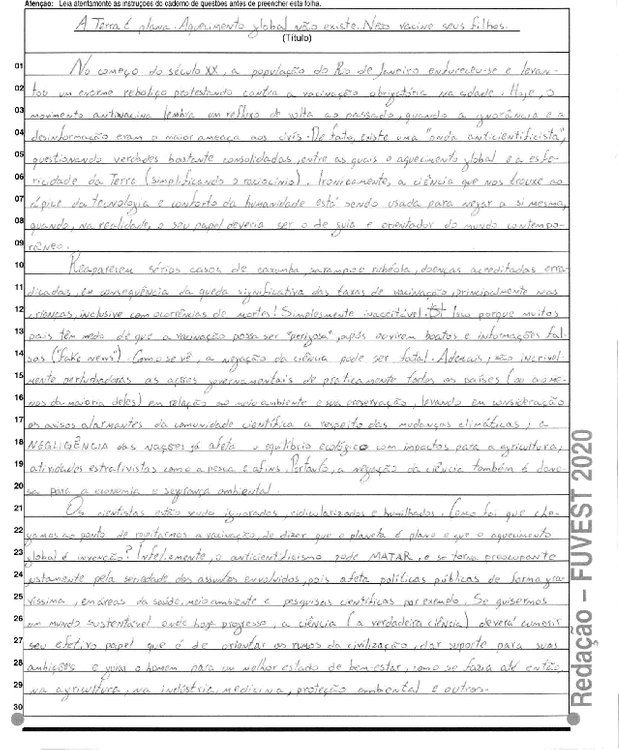 Atenção: Leia atentamente as instruções do caderno de questões antes de preencher esta folha.
A Terra é plana. Aquecimento global não existe. Não vacine seus filhos.
(Título)
01 No começo do século XX, a população do Rio de Janeiro enfureceu-se e levan-
02 tou um enorme rebuliço protestando contra a vacinação obrigatória na cidade. Hoje, o
03 movimento antivacina lembra um reflexo de volta ao passado, quando a ignorância e a
04 desinformação eram o maior ameaça aos civis. De fato, existe uma "onda anticientificista",
05 questionando verdades bastante consolidadas, entre as quais o aquecimento global e a esfe-
06 ricidade da Terra (simplificando o raciocínio). Ironicamente, a ciência que nos trouxe ao
07 ápice da tecnologia e conforto da humanidade está sendo usada para negar a si mesma,
08 quando, na realidade, o seu papel deveria ser o de guia e orientador do mundo contempo-
09 râneo.
10 Reaparecem sérios casos de caxumba, sarampo e rubéola, doenças acreditadas erra-
11 dicadas, em consequência da queda significativa das taxas de vacinação, principalmente nas
12 crianças, inclusive com ocorrências de mortes! Simplesmente inaceitável. Isso porque muitos
13 pais têm medo de que a vacinação possa ser "perigosa", após ouvirem boatos e informações fal-
14 sas ("fake news"). Como se vê, a negação da ciência pode ser fatal. Ademais, são incrivel-
15 mente perturbadoras as ações governamentais de praticamente todos os países (ou ao me-
16 nos da maioria deles) em relação ao meio ambiente e sua preservação, levando em consideração
17 os avisos alarmantes da comunidade científica a respeito das mudanças climáticas; a
18 NEGLIGÊNCIA das nações já afeta o equilíbrio ecológico com impactos para a agricultura,
19 atividades extrativistas como a pesca e afins. Portanto, a negação da ciência também é dano-
20 sa para a economia e segurança ambiental.
21 Os cientistas estão sendo ignorados, ridicularizados e humilhados. Como foi que che-
22 gamos ao ponto de repetirmos a vacinação, de dizer que o planeta é plano e que o aquecimento
23 global é invenção? Infelizmente, o anticientificismo pode MATAR, e se torna preocupante
24 justamente pela seriedade dos assuntos envolvidos, pois afeta políticas públicas de forma gra-
25 víssima, em áreas da saúde, meio ambiente e pesquisas científicas por exemplo. Se quisermos
26 um mundo sustentável onde haja progresso, a ciência (a verdadeira ciência) deverá cumprir
27 seu efetivo papel que é de orientar os rumos da civilização, dar suporte para suas
28 ambições e guiar o homem para um melhor estado de bem-estar, como se fazia até então,
29 na agricultura, na indústria, medicina, proteção ambiental e outros.
30
Redação – FUVEST 2020